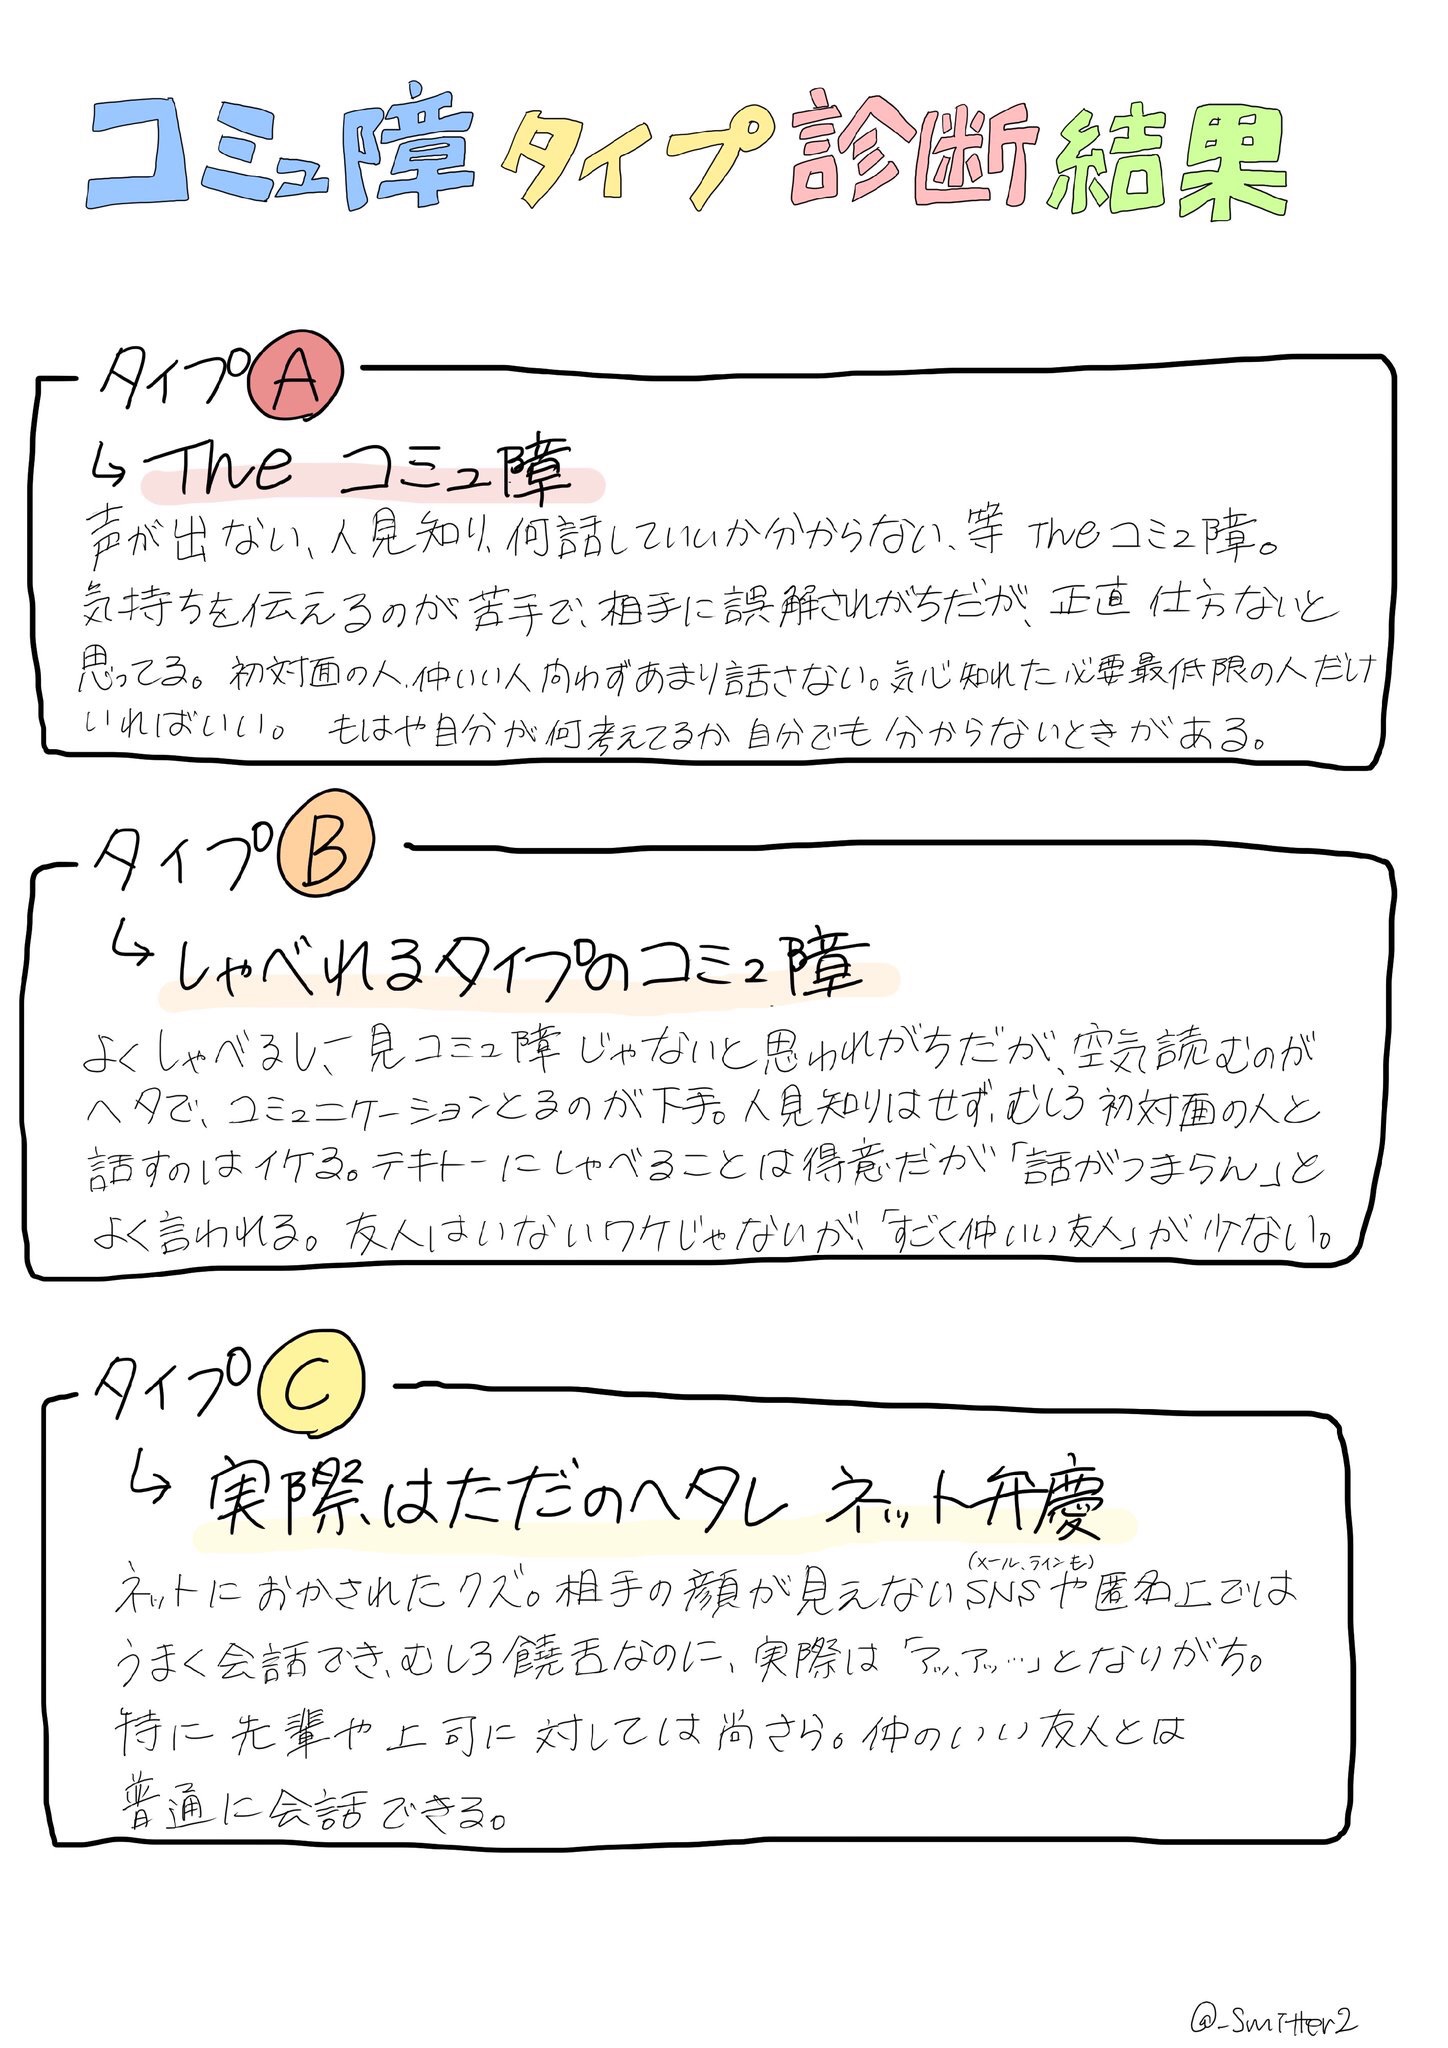 コミュ障タイプ診断結果
タイプA
↳ The コミュ障
声が出ない、人見知り、何話していいか分からない、等 Theコミュ障。
気持ちを伝えるのが苦手で、相手に誤解されがちだが、正直仕方ないと
思ってる。初対面の人、仲いい人問わずあまり話さない。気心知れた必要最低限の人だけ
いればいい。もはや自分が何考えてるか自分でも分からないときがある。
タイプB
↳ しゃべれるタイプのコミュ障
よくしゃべるし、一見コミュ障じゃないと思われがちだが、空気読むのが
ヘタで、コミュニケーションとるのが下手。人見知りはせず、むしろ初対面の人と
話すのはイケる。テキトーにしゃべることは得意だが「話がつまらん」と
よく言われる。友人はいないワケじゃないが、「すごく仲いい友人」が少ない。
タイプC
↳ 実際はただのヘタレ ネット弁慶
(メール、ラインも)
ネットにおかされたクズ。相手の顔が見えないSNSや匿名上では
うまく会話でき、むしろ饒舌なのに、実際は「アッ、アッ…」となりがち。
特に先輩や上司に対しては尚さら。仲のいい友人とは
普通に会話できる。
@_Smitter2